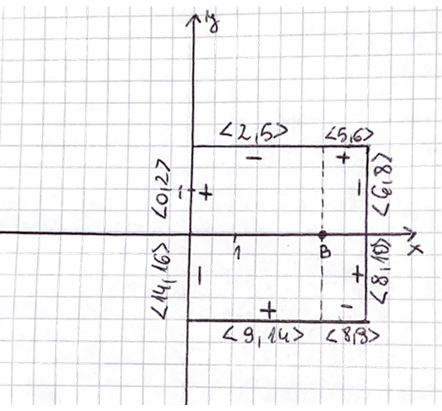 y
<2,5> <5,6>
− +
<0,2> 1 + − <6,8>
1 B x
<14,16> − + <8,10>
+ −
<9,14> <8,9>